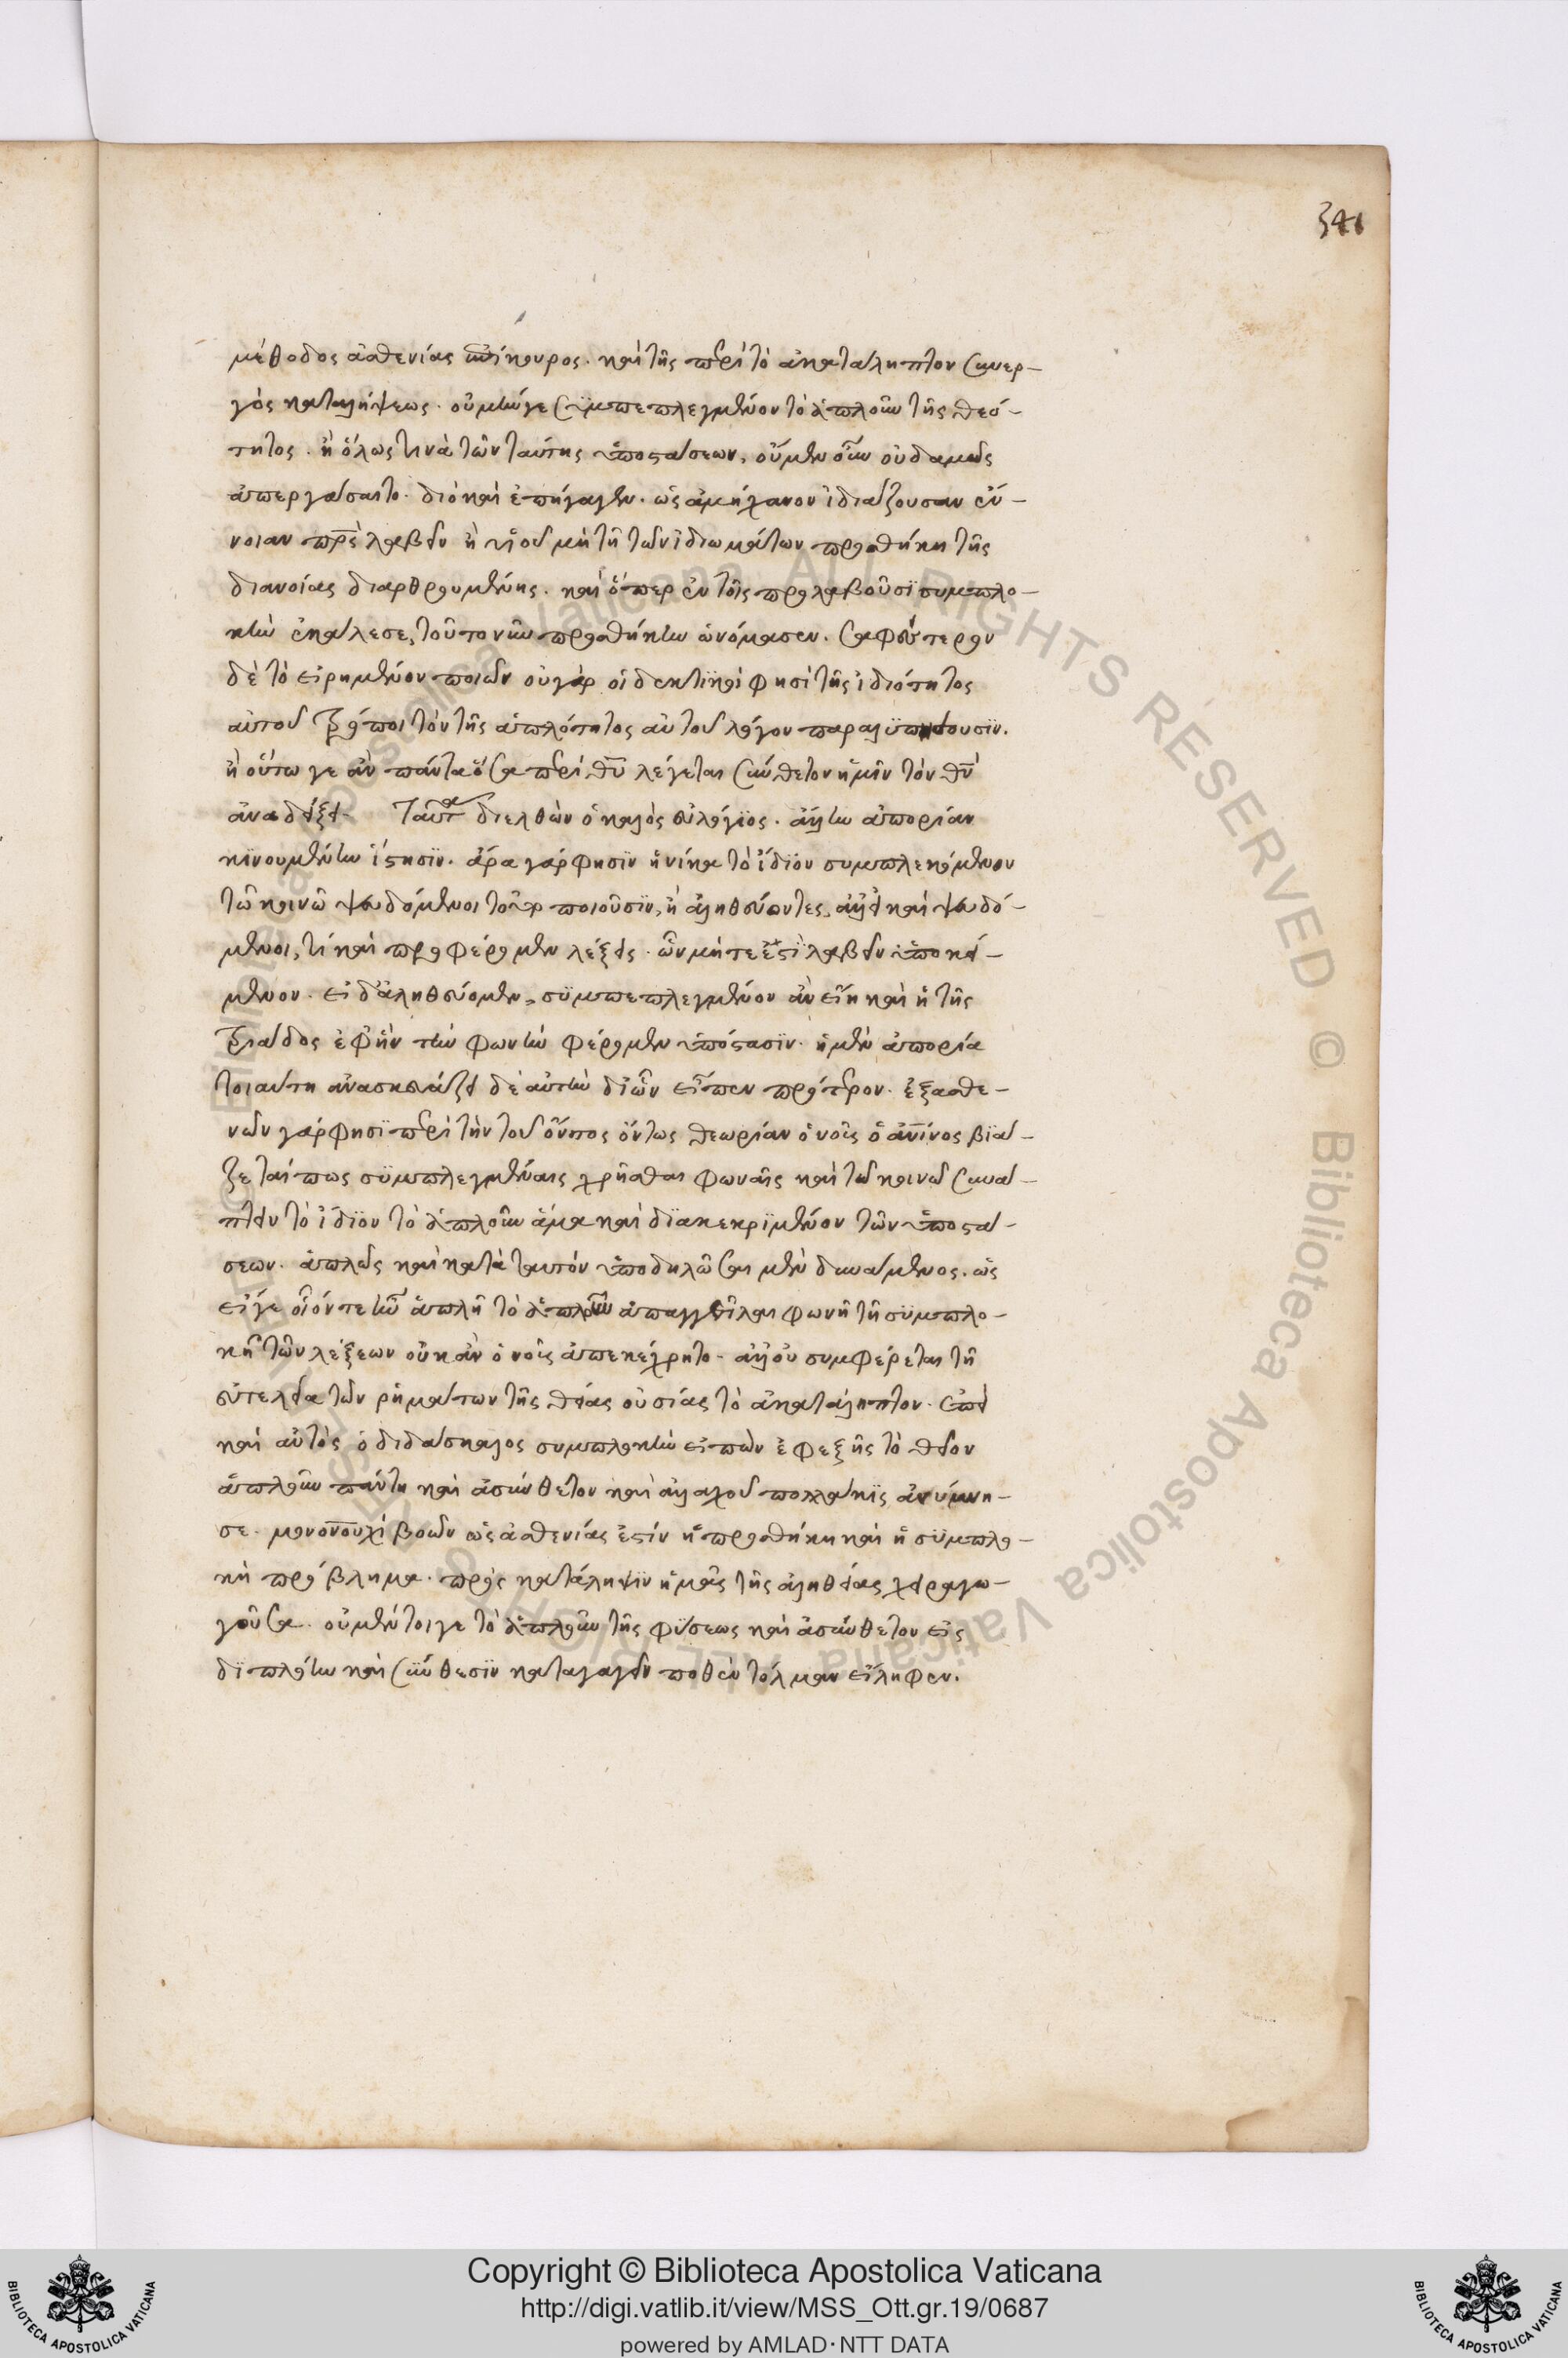 341
μέθοδος ἀσθενίας ἐπίκουρος. καὶ τῆς περὶ τὸ ἀκατάληπτον συνερ-
γὸς καταλήψεως. οὐ μὴν γε συμπεπλεγμένον τὸ ἁπλοῦν τῆς θεό-
τητος. ἢ ὅλως τινὰ τῶν ταύτης ὑποστάσεων, οὔμεν οὖν οὐδαμῶς
ἀπεργάσαιτο. διὸ καὶ ἐπήγαγεν. ὡς ἀμήχανον ἰδιάζουσαν ἔν-
νοιαν πρς λαβεῖν ἢ υἱοῦ μὴ τῆ τῶν ἰδιωμάτων προσθήκη τῆς
διανοίας διαρθρουμένης. καὶ ὅπερ ἐν τοῖς προλαβοῦσϊ συμπλο-
κὴν ἐκάλεσε, τοῦτο νῦν προσθήκην ὠνόμασεν. σαφέστερον
δὲ τὸ εἰρημένον ποιῶν οὐ γὰρ οἱ δεικτϊκοί φησὶ τῆς ἰδιότητος
αὐτοῦ τρόποι τὸν τῆς ἁπλότητος αὐτοῦ λόγον παραλϋπήσουσϊν.
ἢ οὕτω γε ἂν πάντα ὅσα περὶ θυ λέγεται σύνθετον ἡμῖν τὸν θν
ἀναδείξει. Ταῦτα διελθὼν ὁ καλὸς εὐλόγϊος. ἄλλην ἀπορίαν
κϊνουμένην ἵστησϊν. ἆρα γάρ φησὶν ἡνίκα τὸ ἴδϊον συμπλεκόμενον
τῶ κοινῶ ψευδόμενοι τοῦτο ποιοῦσϊν, ἢ ἀληθεύοντες, ἀλλ' εἰ καὶ ψευδό-
μενοι, τί καὶ προφέρομεν λέξεις. ὧν μήτε ἔστϊ λαβεῖν ὑποκεί-
μενον. εἰ δ' ἀληθεύομεν, σϋμπεπλεγμένον ἂν εἴη καὶ ἡ τῆς
τριάδος ἐφ' ἣν τὴν φωνὴν φέρομεν ὑπόστασϊν. ἡ μὲν ἀπορία
τοιαύτη ἀνασκευάζει δὲ αὐτὴν δι' ὧν εἶπεν πρότερον. ἐξασθε-
νῶν γάρ φησϊ περὶ τὴν τοῦ ὄντος ὄντως θεωρίαν ὁ νοῦς ὁ ἀνινος βϊά-
ζεταί πως σϋμπλεγμέναις χρῆσθαι φωναῖς καὶ τῶ κοινῶ συνά-
πτειν τὸ ἴδϊον τὸ ἁπλοῦν ἅμα καὶ δϊακεκρϊμένον τῶν ὑποστά-
σεων. ἁπλῶς καὶ κατὰ ταυτὸν ὑποδηλῶσαι μὲν δυνάμενος. ὡς
εἴγε οἷόν τε ἦν ἁπλῆ τὸ ἁπλοῦν ἀπαγγεῖλαι φωνῆ τῆ σϋμπλο-
κῆ τῶν λέξεων οὐκ ἂν ὁ νοῦς ἀπεκέχρητο. ἀλλ' οὐ συμφέρεται τῆ
εὐτελεία τῶν ῥημάτων τῆς θείας οὐσίας τὸ ἀκατάληπτον. ἐπεὶ
καὶ αὐτὸς ὁ διδάσκαλος συμπλοκὴν εἰπὼν ἐφεξῆς τὸ θεῖον
ἁπλοῦν πάντη καὶ ἀσύνθετον καὶ ἀλλαχοῦ πολλάκϊς ἀνύμνη-
σε. μονονουχὶ βοῶν ὡς ἀσθενίας ἐστὶν ἡ προσθήκη καὶ ἡ σϋμπλο-
κὴ πρόβλημα. πρὸς κατάληψϊν ἡμᾶς τῆς ἀληθείας χειραγω-
γοῦσα. οὐ μέντοιγε τὸ ἁπλοῦν τῆς φύσεως καὶ ἀσύνθετον εἰς
δϊπλόην καὶ σύνθεσϊν καταγαγεῖν ποθὲν τόλμαν εἴληφεν.
Copyright © Biblioteca Apostolica Vaticana
http://digi.vatlib.it/view/MSS_Ott.gr.19/0687
powered by AMLAD·NTT DATA